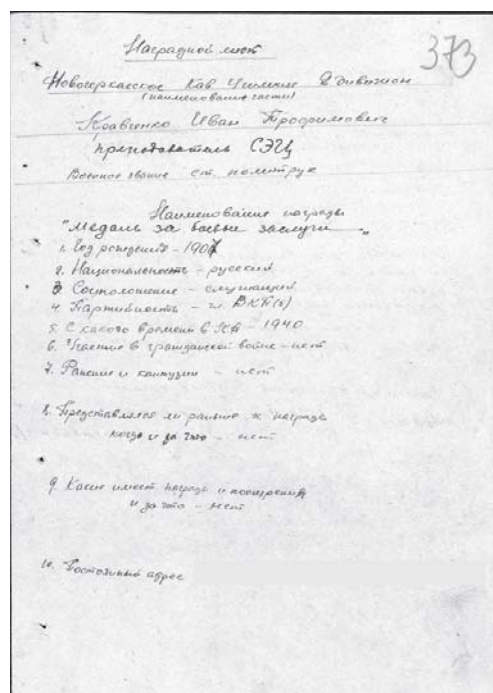 373
Наградной лист
Новочеркасское Кав Училище 2 дивизион
(наименование части)
Кравченко Иван Трофимович
преподаватель СЭЦ
Военное звание ст. политрук
Наименование награды
"Медаль за боевые заслуги"
1. Год рождения - 1907
2. Национальность - русский
3 Соцположение - служащий
4. Партийность - чл. ВКП(б)
5. С какого времени в КА - 1940
6. Участие в гражданской войне - нет
7. Ранение и контузии - нет
8. Представлялся ли раньше к награде
когда и за что - нет
9. Какие имеет награды и поощрения
и за что - нет
10. Постоянный адрес